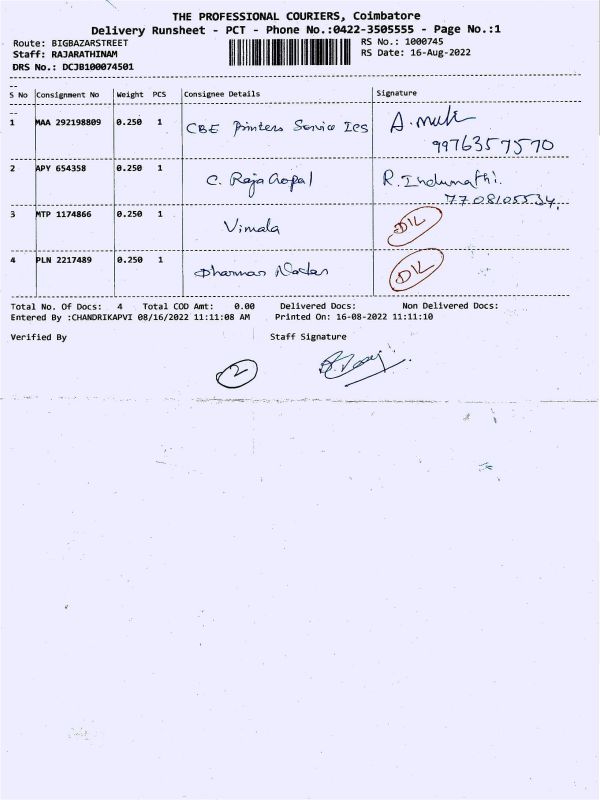 THE PROFESSIONAL COURIERS, Coimbatore
Delivery Runsheet - PCT - Phone No.:0422-3505555 - Page No.:1
Route: BIGBAZARSTREET RS No.: 1000745
Staff: RAJARATHINAM RS Date: 16-Aug-2022
DRS No.: DCJB100074501
S No Consignment No Weight PCS Consignee Details Signature
1 MAA 292198809 0.250 1 CBE Printers Service Ics A.
9976357570
2 APY 654358 0.250 1 C. Raja Gopal R. Indumathi.
7708105534.
3 MTP 1174866 0.250 1 Vimala D/L
4 PLN 2217489 0.250 1 Dharman D/L
Total No. Of Docs: 4 Total COD Amt: 0.00 Delivered Docs: Non Delivered Docs:
Entered By :CHANDRIKAPVI 08/16/2022 11:11:08 AM Printed On: 16-08-2022 11:11:10
Verified By Staff Signature
2